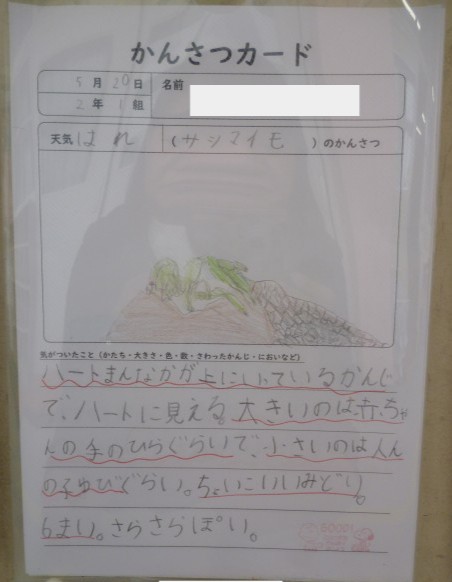 かんさつカード
5月20日 名前
2年1組
天気 はれ (サツマイモ)のかんさつ
気がついたこと(かたち・大きさ・色・数・さわったかんじ・においなど)
ハートまんなかが上にいっているかんじ
で、ハートに見える。大きいのは赤ちゃ
んの手のひらぐらいで、小さいのは人
のこゆびぐらい。ちょいこいみどり。
6まい。さらさらぽい。
GOOD!